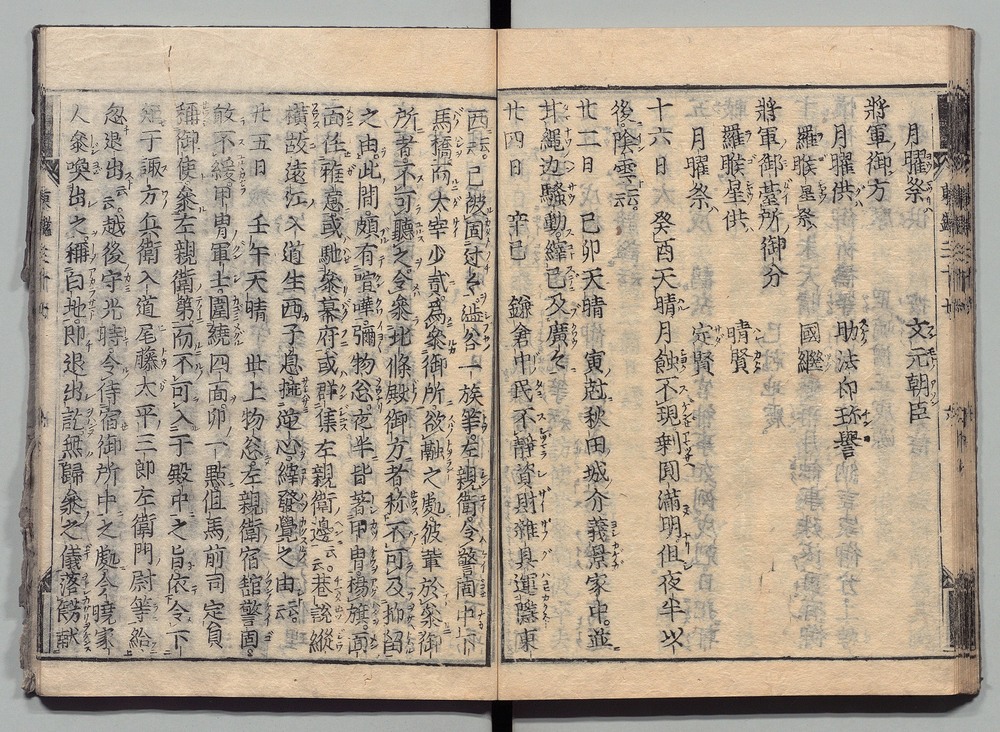 月曜祭 文元朝臣
將軍御方
月曜供 助法印珎譽
羅睺星祭 國継
將軍御臺所御分
羅睺星供 晴賢
月曜祭 定賢
十六日 癸酉天晴月蝕不現剰圓満明但夜半以
後陰雲云云
廿三日 己卯天晴 寅尅秋田城介義景家中并
甘縄辺騒動縡已及廣々
廿四日 辛巳 鎌倉中民不静資財雜具運隱東
西云云已被固辻々澁谷一族等左親衛令警固中下
馬橋而太宰少貳為參御所欲融之處彼輩於參御
所者不可聽之令參北條殿御方者称不可及抑留
之由此間頗有喧嘩彌物忩夜半皆著甲冑揚旗面
面任雅意或馳參幕府或群集左親衛邊云云巷説縱
横故遠江入道生西子息挿逆心縡發覺之由云云
廿五日 壬午天晴 世上物忩左親衛宿舘警固
敢不緩甲冑軍士圍繞四面卯一點但馬前司定員
稱御使參左親衛第而不可入于殿中之旨依令下
知于諏方兵衛入道尾藤太平三郎左衛門尉等給
忽退出云云越後守光時令侍宿御所中之處今曉家
人參喚出之稱白地即退出訖無歸參之儀落餝献